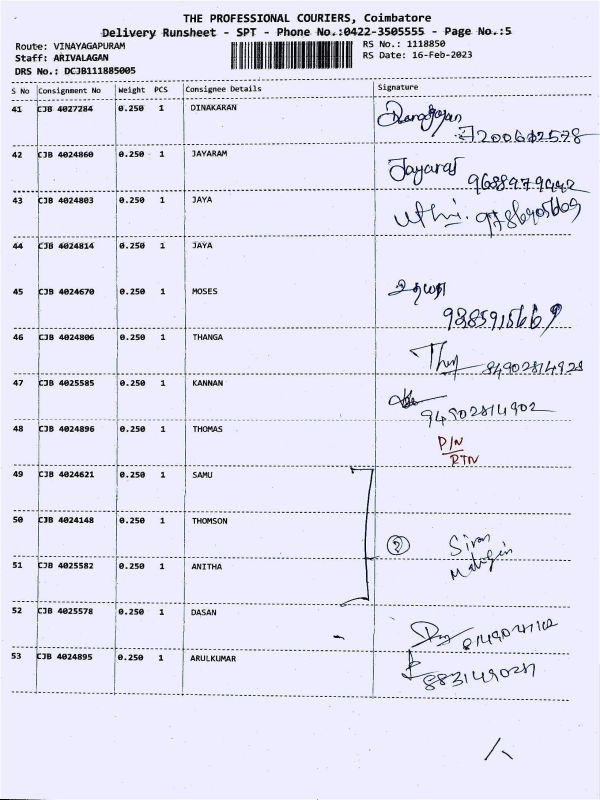 THE PROFESSIONAL COURIERS, Coimbatore
Delivery Runsheet - SPT - Phone No.:0422-3505555 - Page No.:5
Route: VINAYAGAPURAM
RS No.: 1118850
Staff: ARIVALAGAN
RS Date: 16-Feb-2023
DRS No.: DCJB111885005
S No Consignment No Weight PCS Consignee Details Signature
41 CJB 4027284 0.250 1 DINAKARAN
42 CJB 4024860 0.250 1 JAYARAM
43 CJB 4024803 0.250 1 JAYA
44 CJB 4024814 0.250 1 JAYA
45 CJB 4024670 0.250 1 MOSES
46 CJB 4024806 0.250 1 THANGA
84902814928
47 CJB 4025585 0.250 1 KANNAN
94902814902
48 CJB 4024896 0.250 1 THOMAS P/N
RTN
49 CJB 4024621 0.250 1 SAMU
50 CJB 4024148 0.250 1 THOMSON
51 CJB 4025582 0.250 1 ANITHA
52 CJB 4025578 0.250 1 DASAN
53 CJB 4024895 0.250 1 ARULKUMAR